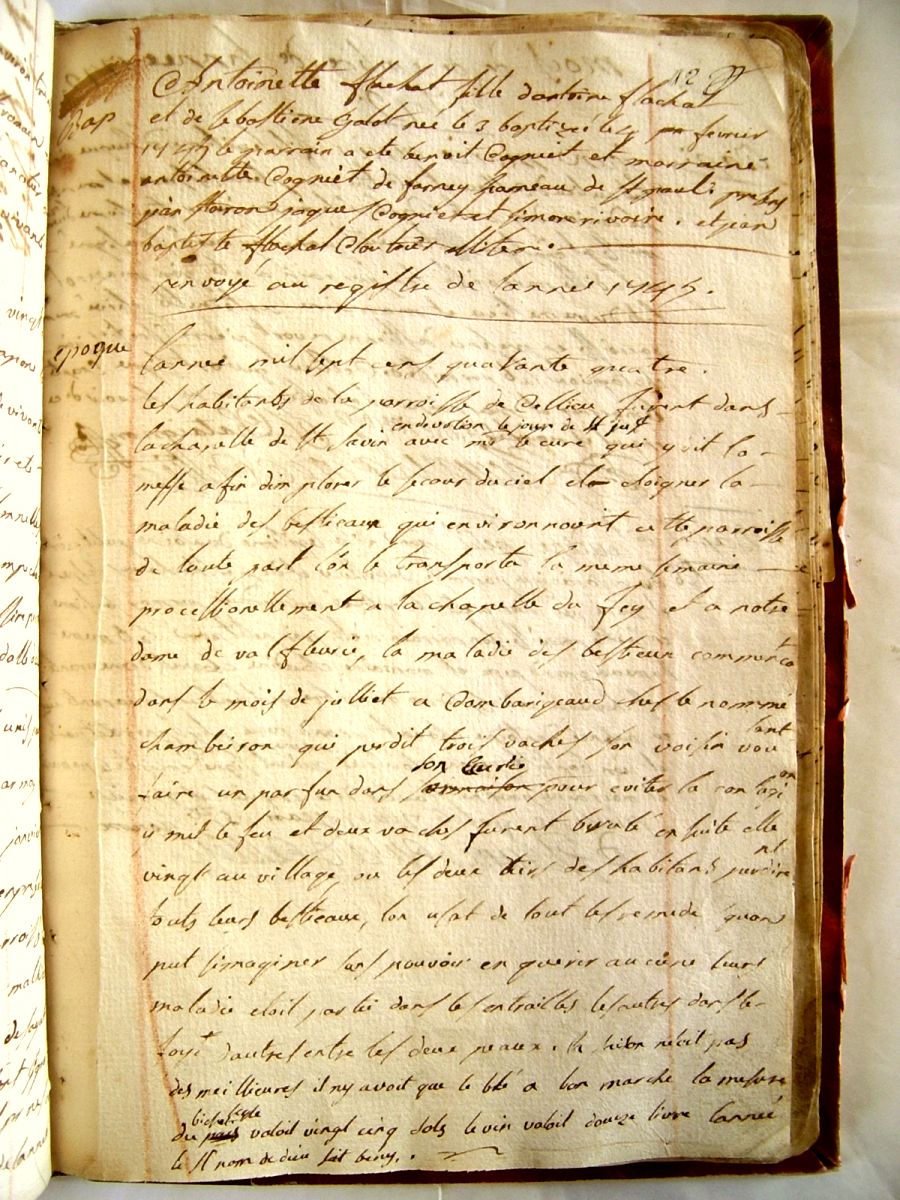 12
Bap
Antoinette flachat fille dantoine flachat
et de sebastiene galot nee le 3 baptizée le 4 fevrier
1745 le parrain a ete benoit Cogniet et marraine
antoinette Cogniet de farney hameau de st paul. presens
jean jaque Cogniet et simon rivoire. et jean
baptiste flachat Cloutrier
renvoyé au registre de lannee 1745.
epoque
lannee mil sept cens quarante quatre.
les habitants de la parroisse de Cellieu furent dans
en devotion le jour de st just
la chapelle de st savin avec mr le curé qui y dit la
messe afin dimplorer le secour du ciel et eloigner la
maladie des bestieaux qui environnoint cette parroisse
de toute part lon se transporta la meme semaine
processionellement a la chapelle du fey et a notre
dame de valfleurie, la maladie des bestieux commenca
dans le mois de julliet a Combarigeaud ches le nommé
chambeiron qui perdit trois vaches son voisin voulant
son ecurie
faire un parfun dans pour eviter la contagion
y mit le feu et deux vaches furent brulé en suite elle
vingt au village, ou les deux tiers des habitans perdirent
touts leurs bestieaux, lon usat de tout les remede quon
put simaginer sans pouvoir en guerir aucune leurs
maladie etoit parti dans les entrailles les autres dans le
foye d'autres entre les deux peaux. la saison netoit pas
des meillieures il ny avoit que le blé a bon marche la mesure
bichet
du pais valoit vingt cinq sols le vin valoit douze livre lannée
le st nom de dieu soit beny.